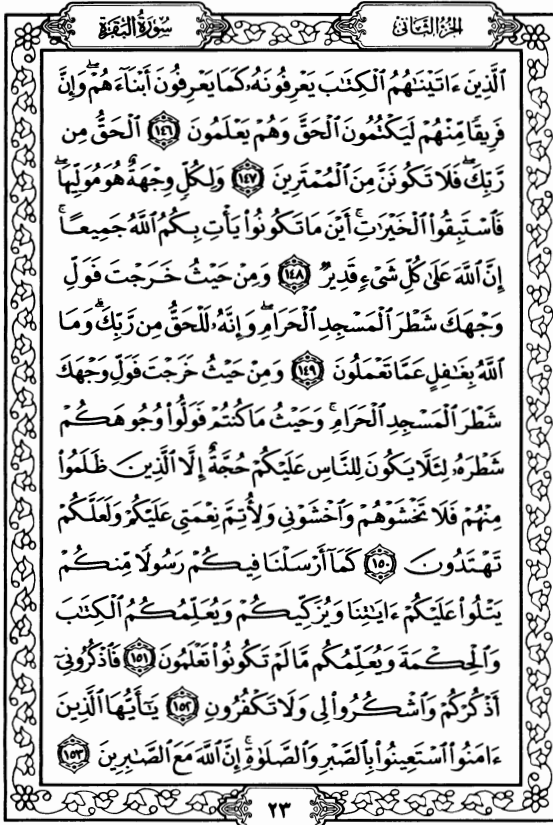 سُورَةُ البَقَرَةِ
الجُزءُ الثَّانِى
ٱلَّذِينَ ءَاتَيْنَٰهُمُ ٱلْكِتَٰبَ يَعْرِفُونَهُۥ كَمَا يَعْرِفُونَ أَبْنَآءَهُمْ ۖ وَإِنَّ
فَرِيقًا مِّنْهُمْ لَيَكْتُمُونَ ٱلْحَقَّ وَهُمْ يَعْلَمُونَ ١٤٦ ٱلْحَقُّ مِن
رَّبِّكَ ۖ فَلَا تَكُونَنَّ مِنَ ٱلْمُمْتَرِينَ ١٤٧ وَلِكُلٍّ وِجْهَةٌ هُوَ مُوَلِّيهَا ۖ
فَٱسْتَبِقُوا۟ ٱلْخَيْرَٰتِ ۚ أَيْنَ مَا تَكُونُوا۟ يَأْتِ بِكُمُ ٱللَّهُ جَمِيعًا ۚ
إِنَّ ٱللَّهَ عَلَىٰ كُلِّ شَىْءٍ قَدِيرٌ ١٤٨ وَمِنْ حَيْثُ خَرَجْتَ فَوَلِّ
وَجْهَكَ شَطْرَ ٱلْمَسْجِدِ ٱلْحَرَامِ ۖ وَإِنَّهُۥ لَلْحَقُّ مِن رَّبِّكَ ۗ وَمَا
ٱللَّهُ بِغَٰفِلٍ عَمَّا تَعْمَلُونَ ١٤٩ وَمِنْ حَيْثُ خَرَجْتَ فَوَلِّ وَجْهَكَ
شَطْرَ ٱلْمَسْجِدِ ٱلْحَرَامِ ۚ وَحَيْثُ مَا كُنتُمْ فَوَلُّوا۟ وُجُوهَكُمْ
شَطْرَهُۥ لِئَلَّا يَكُونَ لِلنَّاسِ عَلَيْكُمْ حُجَّةٌ إِلَّا ٱلَّذِينَ ظَلَمُوا۟
مِنْهُمْ فَلَا تَخْشَوْهُمْ وَٱخْشَوْنِى وَلِأُتِمَّ نِعْمَتِى عَلَيْكُمْ وَلَعَلَّكُمْ
تَهْتَدُونَ ١٥٠ كَمَآ أَرْسَلْنَا فِيكُمْ رَسُولًا مِّنكُمْ
يَتْلُوا۟ عَلَيْكُمْ ءَايَٰتِنَا وَيُزَكِّيكُمْ وَيُعَلِّمُكُمُ ٱلْكِتَٰبَ
وَٱلْحِكْمَةَ وَيُعَلِّمُكُم مَّا لَمْ تَكُونُوا۟ تَعْلَمُونَ ١٥١ فَٱذْكُرُونِىٓ
أَذْكُرْكُمْ وَٱشْكُرُوا۟ لِى وَلَا تَكْفُرُونِ ١٥٢ يَٰٓأَيُّهَا ٱلَّذِينَ
ءَامَنُوا۟ ٱسْتَعِينُوا۟ بِٱلصَّبْرِ وَٱلصَّلَوٰةِ ۚ إِنَّ ٱللَّهَ مَعَ ٱلصَّٰبِرِينَ ١٥٣
٢٣